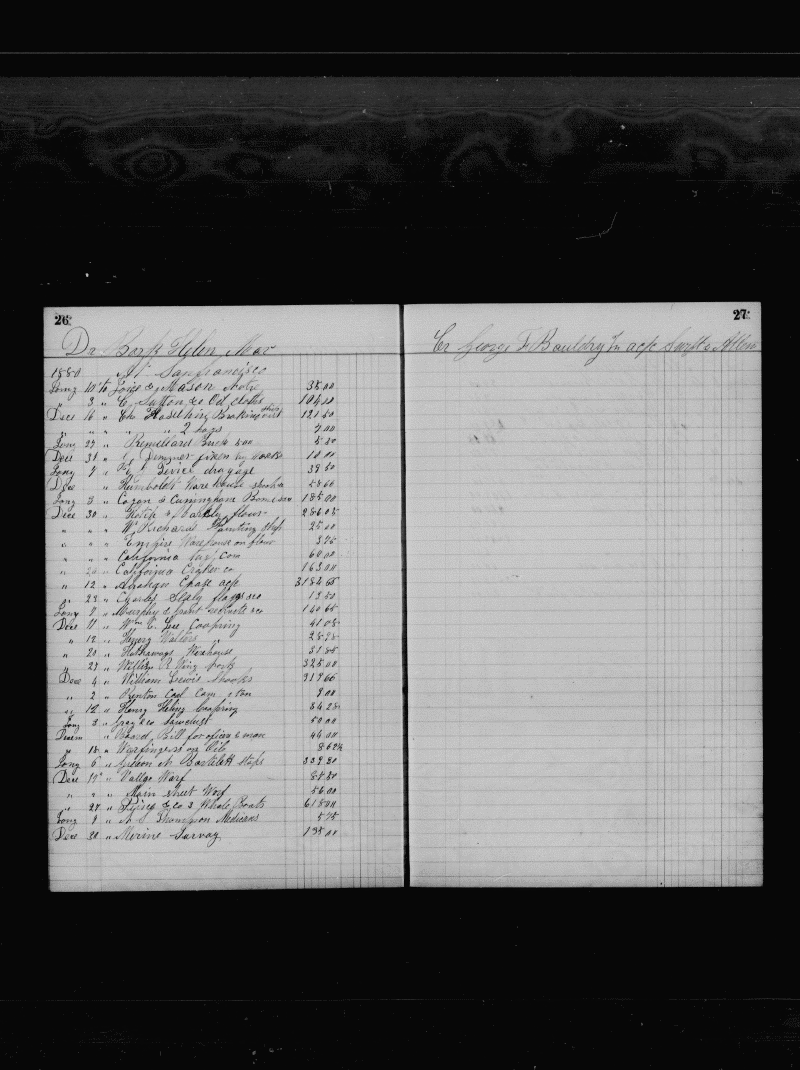 26.
Dr Bark Helen Mar
1880 At Sanfrancisco
Jany 10 to Joice & Mason Note 38 00
" 3 " C. Sutton & co Oil cloths 104 00
Dece 16 " Ch Haselhing Broking 121 50
" " " " " 2 bags 7 00
Jany 27 " Remillard Brick 500 5 50
Dece 31 " fixen by 10 00
Jany 7 " Device drayage 39 50
Dece " Humboldt Ware house 58 66
Jany 3 " Cogan & Cuningham 185 00
Dece 30 " & Barkly flour 286 05
" " " Wm Richards Painting ship 25 00
" " " Empire Warehouse on flour 3 75
" " " California Com 60 00
" 20 " California Craker co 163 00
" 12 " Chase acp 3184 65
" 23 " Charles flags &co 13 50
Jany 7 " Murphy & Grant &co 140 65
Dece 11 " Wm C. Gee Coopring 41 08
" 12 " Henry Walters " 28 78
" 20 " Hathaways Werhouse 31 85
" 27 " William R Wing pork 325 00
Dece 4 " William Lewis Shooks 319 66
" 2 " Renton Coal Com 1 ton 9 00
" 12 " Henry Coopring 84 28
Jany 3 " Gray & co Sawdust 50 00
" Board Bill for oficer & man 46 00
" 18 " Warfingers on Oil 86 24
Jany 6 " Gideon N. Bartlett Slops 339 80
Dece 15 " Vallgo Warf 88 50
" " " Main street Worf 56 00
" 27 " & co 3 Whale Boats 618 00
Jany 8 " N. S. Thompson Medicens 5 75
Dece 30 " Merine Survay 135 00
27.
Cr George F. Bauldry In acp Swift & Allen